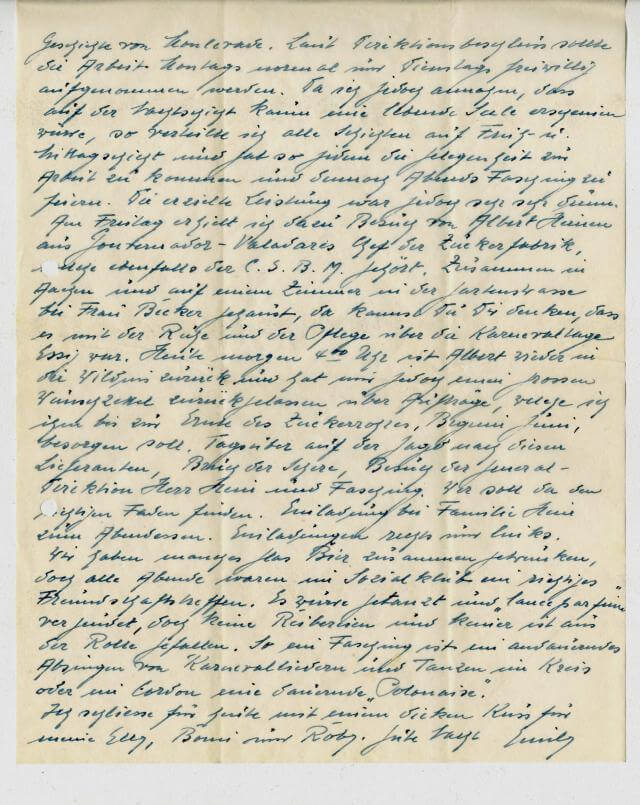 Geschichte von Monlevade. Laut Direktionsbeschluss sollte
die Arbeit Montags normal und Dienstags freiwillig
aufgenommen werden. Da ich jedoch annahm, dass
auf der Nachtschicht kaum eine lebende Seele erscheinen
würde, so verteilte ich alle Schichten auf Früh- u.
Mittagschicht und gab so jedem die Gelegenheit zur
Arbeit zu kommen und dennoch Abends Fasching zu
feiern. Die erzielte Leistung war jedoch sehr sehr dünn.
Am Freitag erhielt ich dazu Besuch von Albert Heinen
aus Gouvernador-Valadares Chef der Zückerfabrik,
welche ebenfalls der C.S.B.M. gehört. Zusammen in
Aachen und auf einem Zimmer in der Gartenstrasse
bei Frau Becker gehaust, da kannst Du Dir denken, dass
es mit der Ruhe und der Pflege über die Karnevalltage
Essig war. Heute morgen 4⁰⁰ Uhr ist Albert wieder in
die Wildnis zurück und hat mir jedoch einen grossen
Wunschzettel zurückgelassen über Aufträge, welche ich
ihm bis zur Ernte des Zückerrohres, Beginn Juni,
besorgen soll. Tagsüber auf der Jagd nach diesen
Lieferanten, Besuch der General-
Direktion Herr Hein und Fasching. Wer soll da den
richtigen Faden finden. Einladung bei Familie Hein
zum Abendessen. Einladungen rechts und links.
Wir haben manches Glas Bier zusammen getrunken,
doch alle Abende waren im Sozialklub ein richtiges
Freundschaftstreffen. Es wurde getanzt und "lance parfum"
vergeudet, doch keine Reibereien und keiner ist aus
der Rolle gefallen. So ein Fasching ist ein andauerndes
Absingen von Karnevalliedern und Tanzen im Kreis
oder im Cordon eine dauernde "Polonaise".
Ich schliesse für heute mit einem dicken Kuss für
meine Elly, Bomi und Roby. Gute Nacht Emil